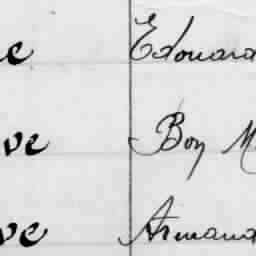 Edouard
ve Boy M
ve Armand